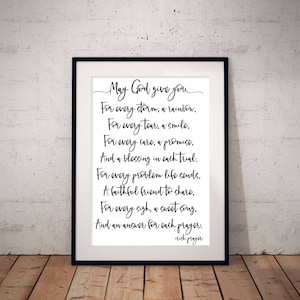 May God give you
For every storm, a rainbow,
For every tear, a smile,
For every care, a promise,
And a blessing in each trial.
For every problem life sends,
A faithful friend to share,
For every sigh, a sweet song,
And an answer for each prayer.
irish prayer